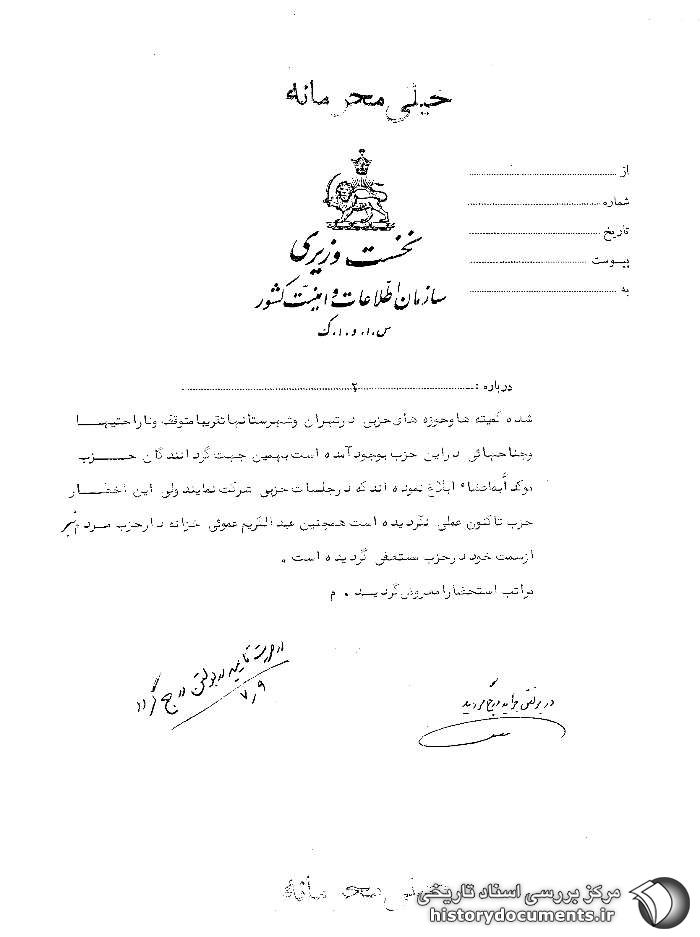 خیلی محرمانه
از
شماره
تاریخ
پیوست
به
نخست وزیری
سازمان اطلاعات و امنیت کشور
س.ا.و.ا.ک
درباره : ۲
شده کمیته ها وحوزه های حزبی درتهران وشهرستانها تقریبا متوقف وناراحتیهــا
وجناحهائی دراین حزب بوجود آمده است بهمین جهت گردانندگان حــزب
موکدأ به اعضاء ابلاغ نموده اند که درجلسات حزبی شرکت نمایند ولی این اخطــار
حزب تاکنون عملی نگردیده است همچنین عبدالکریم عموئی خزانه دار حزب مردم نیز
ازسمت خود درحزب مستعفی گردیده است .
مراتب استحضارا معروض گردیــد . م
در صورت تایید در بولتن درج گردد
۷٫۹
در بولتن جراید درج گردید
خیلی محرمانه
مرکز بررسی اسناد تاریخی
historydocuments.ir